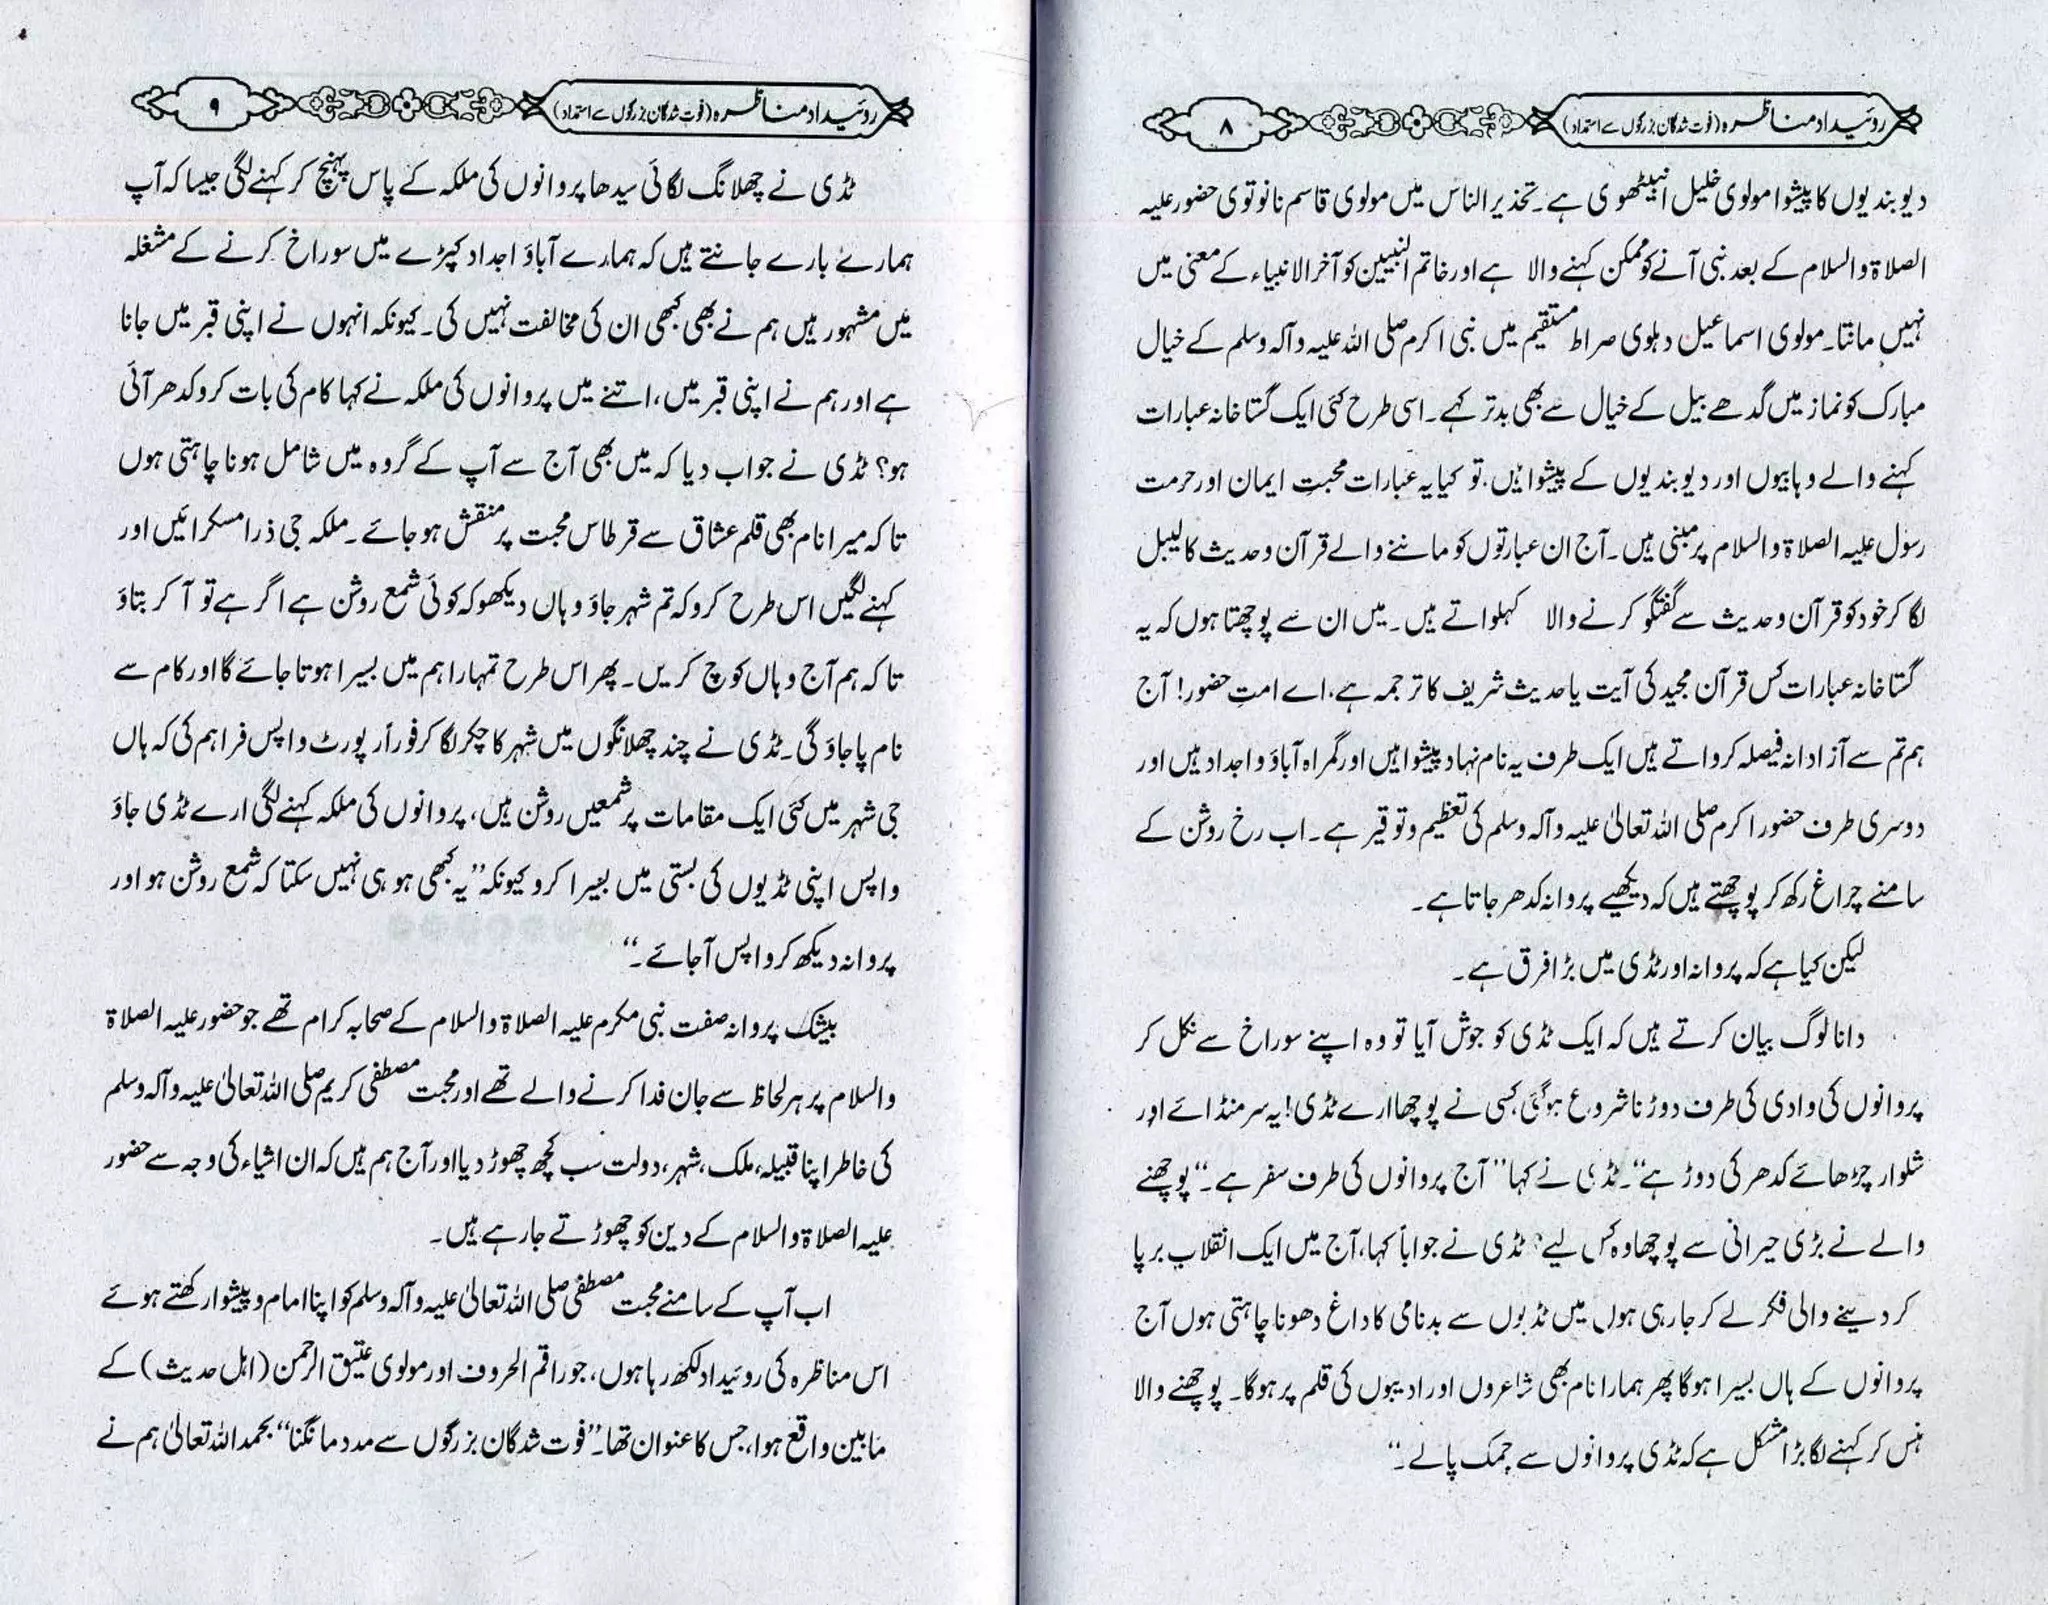 روئیداد مناظرہ (فوت شدگان بزرگوں سے استمداد)
۸
دیوبندیوں کا پیشوا مولوی خلیل انبیٹھوی ہے۔ تحذیر الناس میں مولوی قاسم نانوتوی حضور علیہ
الصلاۃ والسلام کے بعد نبی آنے کو ممکن کہنے والا ہے اور خاتم النبیین کو آخر الانبیاء کے معنی میں
نہیں مانتا۔ مولوی اسماعیل دہلوی صراط مستقیم میں نبی اکرم صلی اللہ علیہ وآلہ وسلم کے خیال
مبارک کو نماز میں گدھے بیل کے خیال سے بھی بدتر کہے۔ اسی طرح کئی ایک گستاخانہ عبارات
کہنے والے وہابیوں اور دیوبندیوں کے پیشوا ہیں۔ تو کیا یہ عبارات محبتِ ایمان اور حرمت
رسول علیہ الصلاۃ والسلام پر مبنی ہیں۔ آج ان عبارتوں کو ماننے والے قرآن وحدیث کا لیبل
لگا کر خود کو قرآن وحدیث سے گفتگو کرنے والا کہلواتے ہیں۔ میں ان سے پوچھتا ہوں کہ یہ
گستاخانہ عبارات کس قرآن مجید کی آیت یا حدیث شریف کا ترجمہ ہے۔ اے امتِ حضور! آج
ہم تم سے آزادانہ فیصلہ کرواتے ہیں ایک طرف یہ نام نہاد پیشوا ہیں اور گمراہ آباؤ واجداد ہیں اور
دوسری طرف حضور اکرم صلی اللہ تعالیٰ علیہ وآلہ وسلم کی تعظیم وتوقیر ہے۔ اب رخ روشن کے
سامنے چراغ رکھ کر پوچھتے ہیں کہ دیکھیے پروانہ کدھر جاتا ہے۔
لیکن کیا ہے کہ پروانہ اور ٹڈی میں بڑا فرق ہے۔
دانا لوگ بیان کرتے ہیں کہ ایک ٹڈی کو جوش آیا تو وہ اپنے سوراخ سے نکل کر
پروانوں کی وادی کی طرف دوڑنا شروع ہوگئی کسی نے پوچھا ارے ٹڈی! یہ سر منڈائے اور
شلوار چڑھائے کدھر کی دوڑ ہے“۔ ٹڈی نے کہا ”آج پروانوں کی طرف سفر ہے۔“ پوچھنے
والے نے بڑی حیرانی سے پوچھا وہ کس لیے؟ ٹڈی نے جواباً کہا، آج میں ایک انقلاب برپا
کر دینے والی فکر لے کر جا رہی ہوں میں ٹڈیوں سے بدنامی کا داغ دھونا چاہتی ہوں آج
پروانوں کے ہاں بسیرا ہوگا پھر ہمارا نام بھی شاعروں اور ادیبوں کی قلم پر ہوگا۔ پوچھنے والا
ہنس کر کہنے لگا بڑا مشکل ہے کہ ٹڈی پروانوں سے چمک پالے۔“
روئیداد مناظرہ (فوت شدگان بزرگوں سے استمداد)
۹
ٹڈی نے چھلانگ لگائی سیدھا پروانوں کی ملکہ کے پاس پہنچ کر کہنے لگی جیسا کہ آپ
ہمارے بارے جانتے ہیں کہ ہمارے آباؤ اجداد کپڑے میں سوراخ کرنے کے مشغلہ
میں مشہور ہیں ہم نے بھی کبھی ان کی مخالفت نہیں کی۔ کیونکہ انہوں نے اپنی قبر میں جانا
ہے اور ہم نے اپنی قبر میں، اتنے میں پروانوں کی ملکہ نے کہا کام کی بات کرو کدھر آئی
ہو؟ ٹڈی نے جواب دیا کہ میں بھی آج سے آپ کے گروہ میں شامل ہونا چاہتی ہوں
تاکہ میرا نام بھی قلم عشاق سے قرطاس محبت پر منقش ہوجائے۔ ملکہ جی ذرا مسکرائیں اور
کہنے لگیں اس طرح کرو کہ تم شہر جاؤ وہاں دیکھو کہ کوئی شمع روشن ہے اگر ہے تو آ کر بتاؤ
تاکہ ہم آج وہاں کوچ کریں۔ پھر اس طرح تمہارا ہم میں بسیرا ہوتا جائے گا اور کام سے
نام پا جاؤ گی۔ ٹڈی نے چند چھلانگوں میں شہر کا چکر لگا کر فوراً رپورٹ واپس فراہم کی کہ ہاں
جی شہر میں کئی ایک مقامات پر شمعیں روشن ہیں، پروانوں کی ملکہ کہنے لگی ارے ٹڈی جاؤ
واپس اپنی ٹڈیوں کی بستی میں بسیرا کرو کیونکہ ”یہ کبھی ہو ہی نہیں سکتا کہ شمع روشن ہو اور
پروانہ دیکھ کر واپس آجائے۔“
بیشک پروانہ صفت نبی مکرم علیہ الصلاۃ والسلام کے صحابہ کرام تھے جو حضور علیہ الصلاۃ
والسلام پر ہر لحاظ سے جان فدا کرنے والے تھے اور محبت مصطفی کریم صلی اللہ تعالیٰ علیہ وآلہ وسلم
کی خاطر اپنا قبیلہ، ملک، شہر، دولت سب کچھ چھوڑ دیا اور آج ہم ہیں کہ ان اشیاء کی وجہ سے حضور
علیہ الصلاۃ والسلام کے دین کو چھوڑتے جا رہے ہیں۔
اب آپ کے سامنے محبت مصطفی صلی اللہ تعالیٰ علیہ وآلہ وسلم کو اپنا امام و پیشوا رکھتے ہوئے
اس مناظرہ کی روئیداد لکھ رہا ہوں، جو راقم الحروف اور مولوی عتیق الرحمن (اہل حدیث) کے
مابین واقع ہوا، جس کا عنوان تھا۔ ”فوت شدگان بزرگوں سے مدد مانگنا“ بحمد اللہ تعالیٰ ہم نے